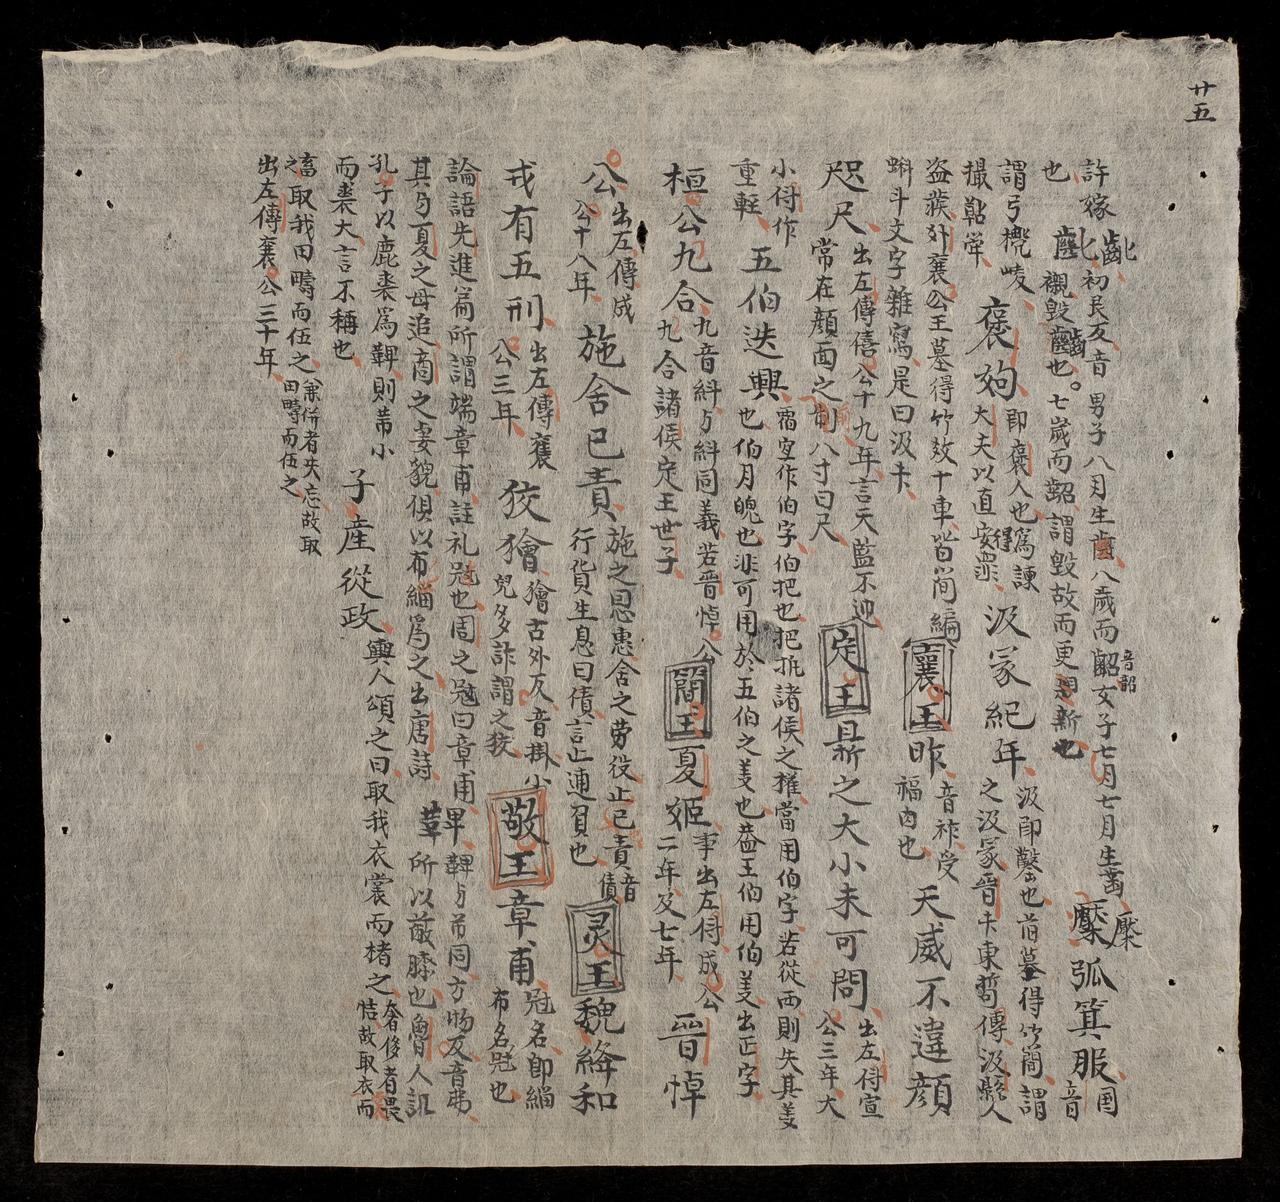 廿五
許嫁 齔 初艮反音 男子八月生齒八歲而齠 音韶 女子七月七月生齒
也 齔 襯毀齒也。七歲而齠謂毀故而更新也
檿弧箕服 國音
謂弓檿崚
撮鞊
褒姁 即褒人也爲諫
大夫以直安衆
汲冢紀年 汲即鑿也首墓得竹簡謂
之汲冢晉卡東晳傳汲縣人
盜蔉外襄公王墓得竹效十車皆簡編
蝌斗文字雜寫是曰汲卡
襄王 胙 音祚受
福肉也
天威不違顏
咫尺 出左傳僖公十九年言天監不迎
常在顏面之前八寸曰尺
定王 鼎之大小未可問 出左傳宣
公三年大
小得作
重輕
五伯迭興 霸宜作伯字伯把也把抵諸侯之權當用伯字若從西則失其美
也伯月魄也非可用於五伯之美也蓋王伯用伯美出正字
桓公九合 九音糾与糾同義若晉悼公
九合諸侯定王世子
簡王 夏姬 事出左傳成公
二年及七年
晉悼
公 出左傳成
公十八年
施舍已責 施之恩惠舍之勞役止已責 音債
行貨生息曰債言止逋負也
灵王 魏絳和
戎有五刑 出左傳襄
公三年
狡獪 獪古外反音掛小
兒多詐謂之狡
敬王 章甫 冠名即緇
布名冠也
論語先進篇所謂端章甫註礼冠也周之冠曰章甫
其与夏之毋追商之妻貌俱以布緇爲之出唐詩
鞸 鞸与芾同方吻反音弗
所以蔽膝也魯人訊
孔子以鹿裘爲鞸則芾小
而裘大言不稱也
子產從政 輿人頌之曰取我衣裳而楮之 奢侈者畏
恡故取衣而
畜
之 取我田疇而伍之 兼併者失忘故取
田疇而伍之
出左傳襄公三十年